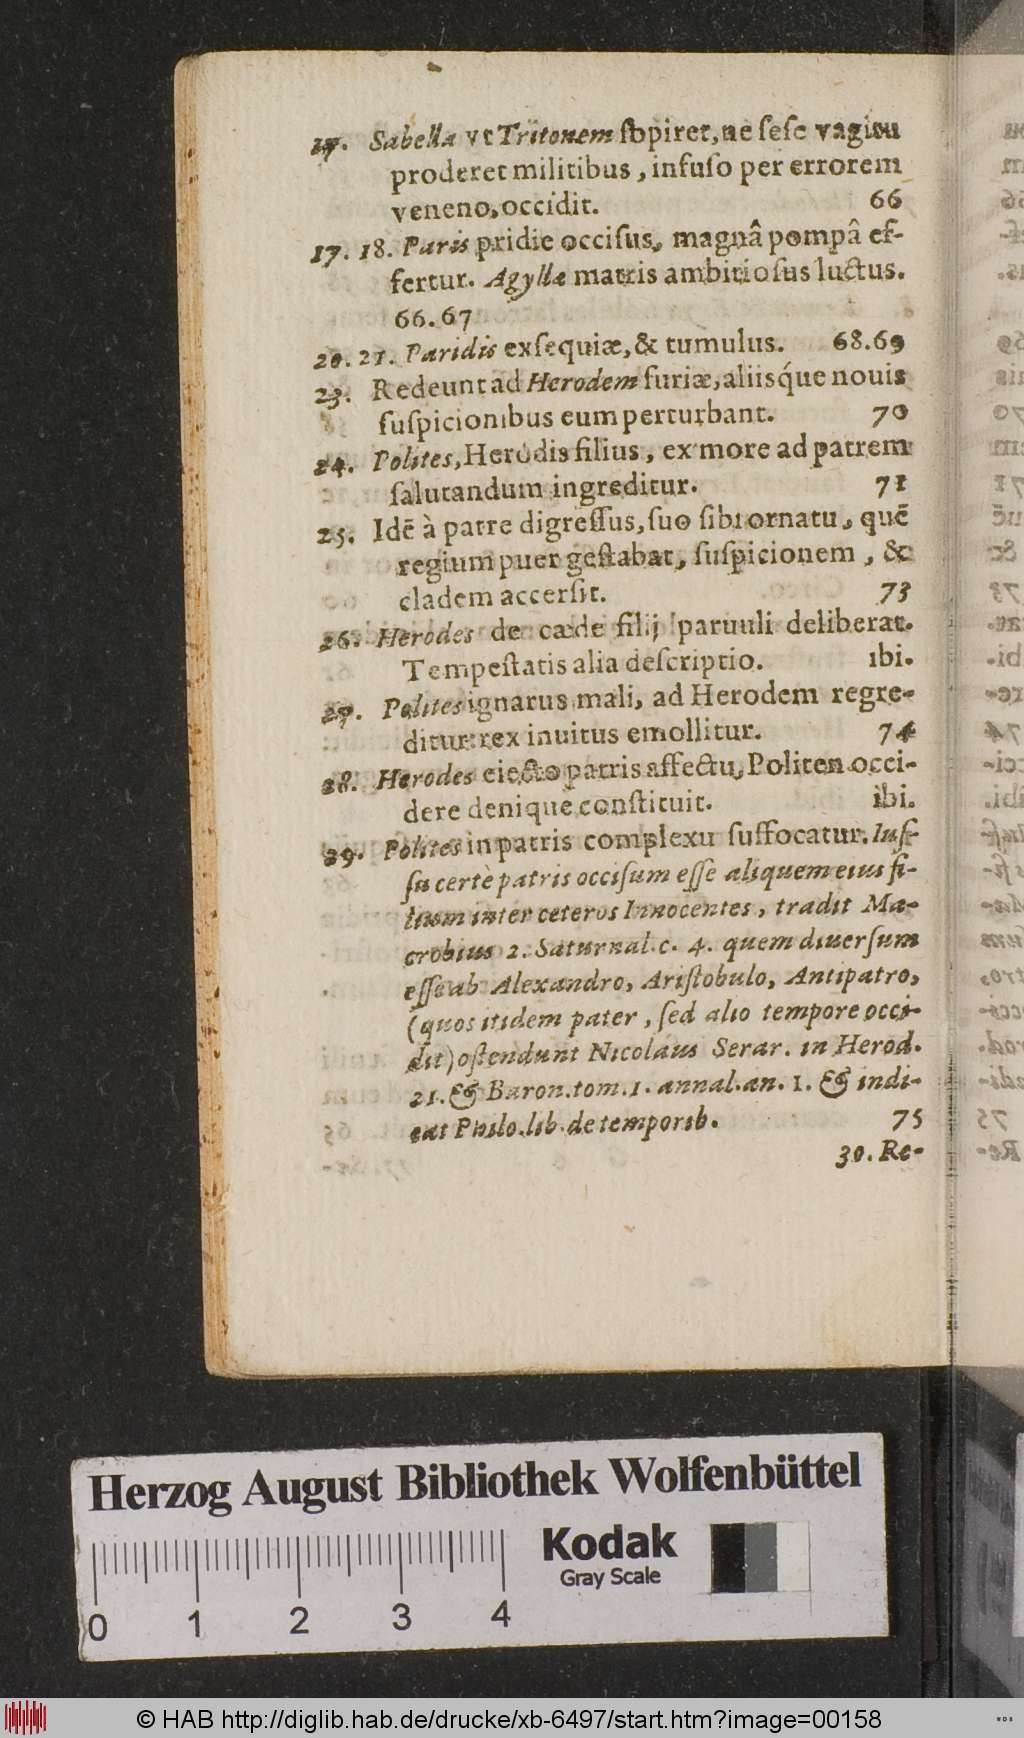 17. Sabella vt Tritonem sopiret, ne sese vagitu
proderet militibus, infuso per errorem
veneno, occidit. 66
17. 18. Paris pridie occisus, magnâ pompâ ef-
fertur. Agyllæ matris ambitiosus luctus.
66.67
20. 21. Paridis exsequiæ, & tumulus. 68.69
23. Redeunt ad Herodem furiæ, aliisq́ue nouis
suspicionibus eum perturbant. 70
24. Polites, Herodis filius, ex more ad patrem
salutandum ingreditur. 71
25. Idē à patre digressus, suo sibi ornatu, quē
regium puer gestabat, suspicionem, &
cladem accersit. 73
26. Herodes de cæde filij paruuli deliberat.
Tempestatis alia descriptio. ibi.
27. Polites ignarus mali, ad Herodem regre-
ditur: rex inuitus emollitur. 74
28. Herodes eiecto patris affectu, Politen occi-
dere denique constituit. ibi.
29. Polites in patris complexu suffocatur. Ius-
su certè patris occisum esse aliquem eius fi-
lium inter ceteros Innocentes, tradit Ma-
crobius 2. Saturnal. c. 4. quem diuersum
esse ab Alexandro, Aristobulo, Antipatro,
(quos itidem pater, sed alio tempore occi-
dit) ostendunt Nicolaus Serar. in Herod.
21. & Baron. tom. 1. annal. an. 1. & indi-
cat Philo. lib. de temporib. 75
30. Re-
Herzog August Bibliothek Wolfenbüttel
Kodak
Gray Scale
0 1 2 3 4
© HAB http://diglib.hab.de/drucke/xb-6497/start.htm?image=00158